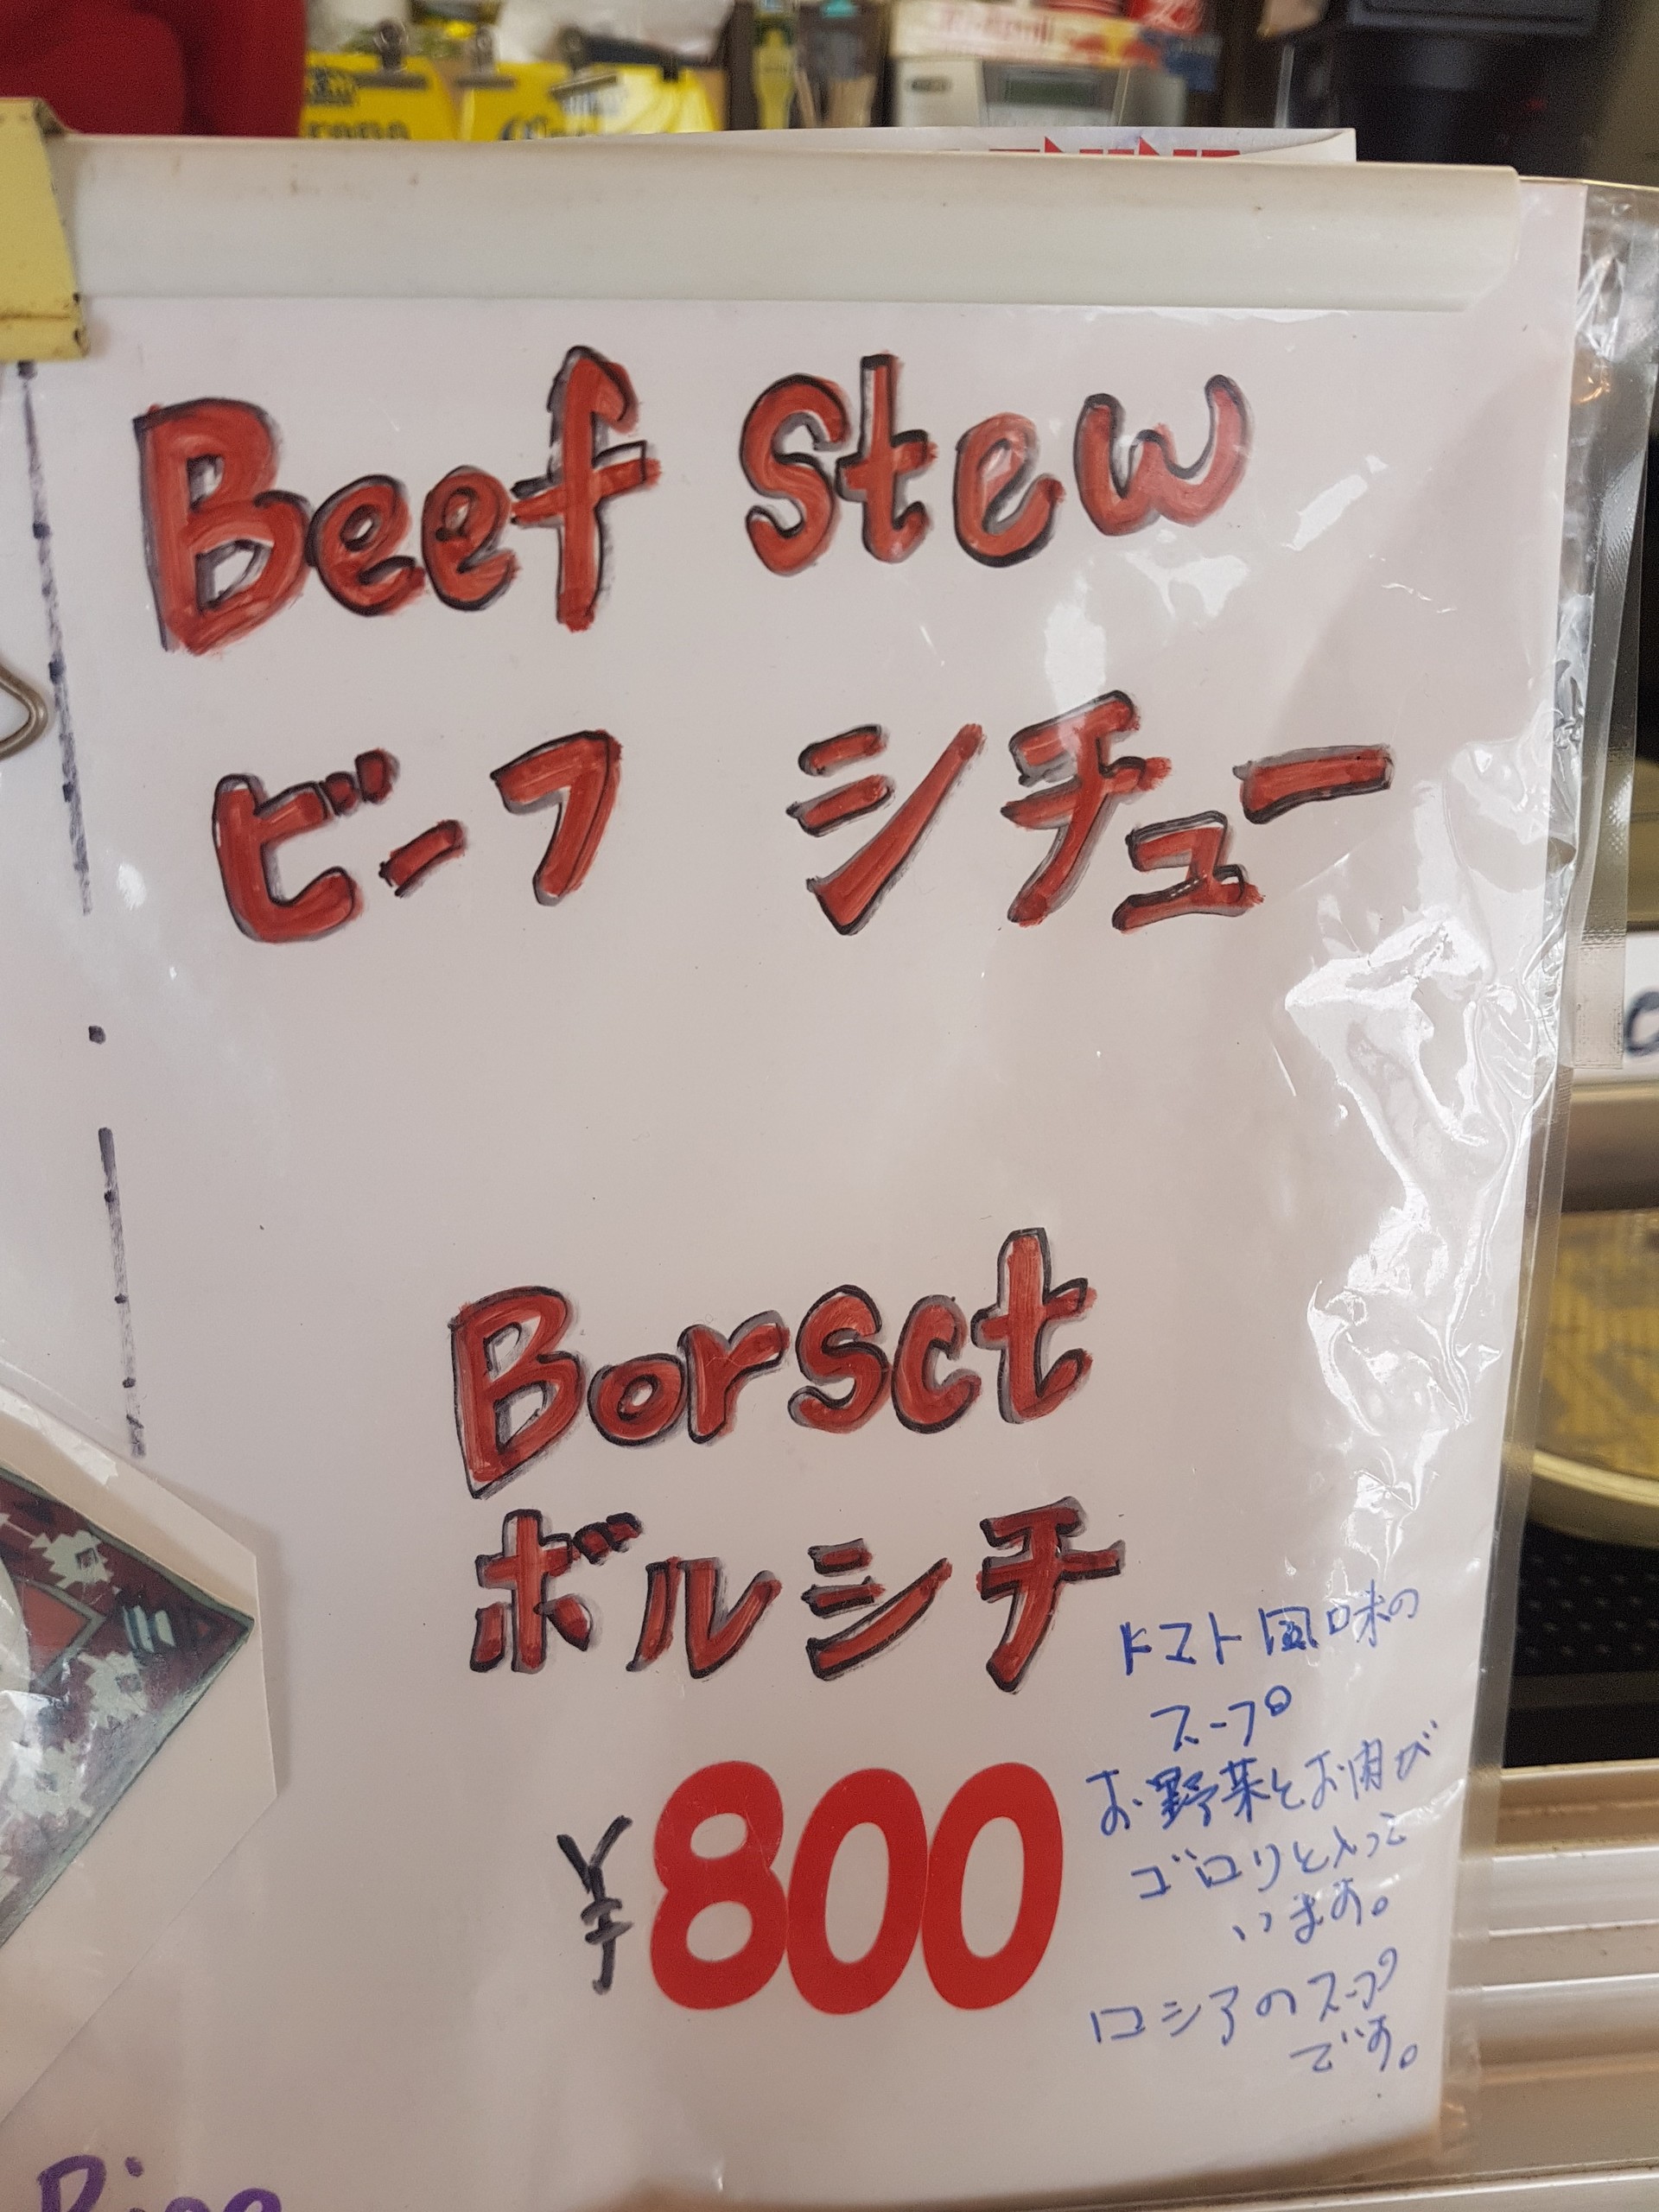 Beef Stew
ビーフ シチュー
Borsct
ボルシチ
¥800
トマト風味の
スープ
お野菜とお肉が
ゴロリと入って
います。
ロシアのスープ
です。